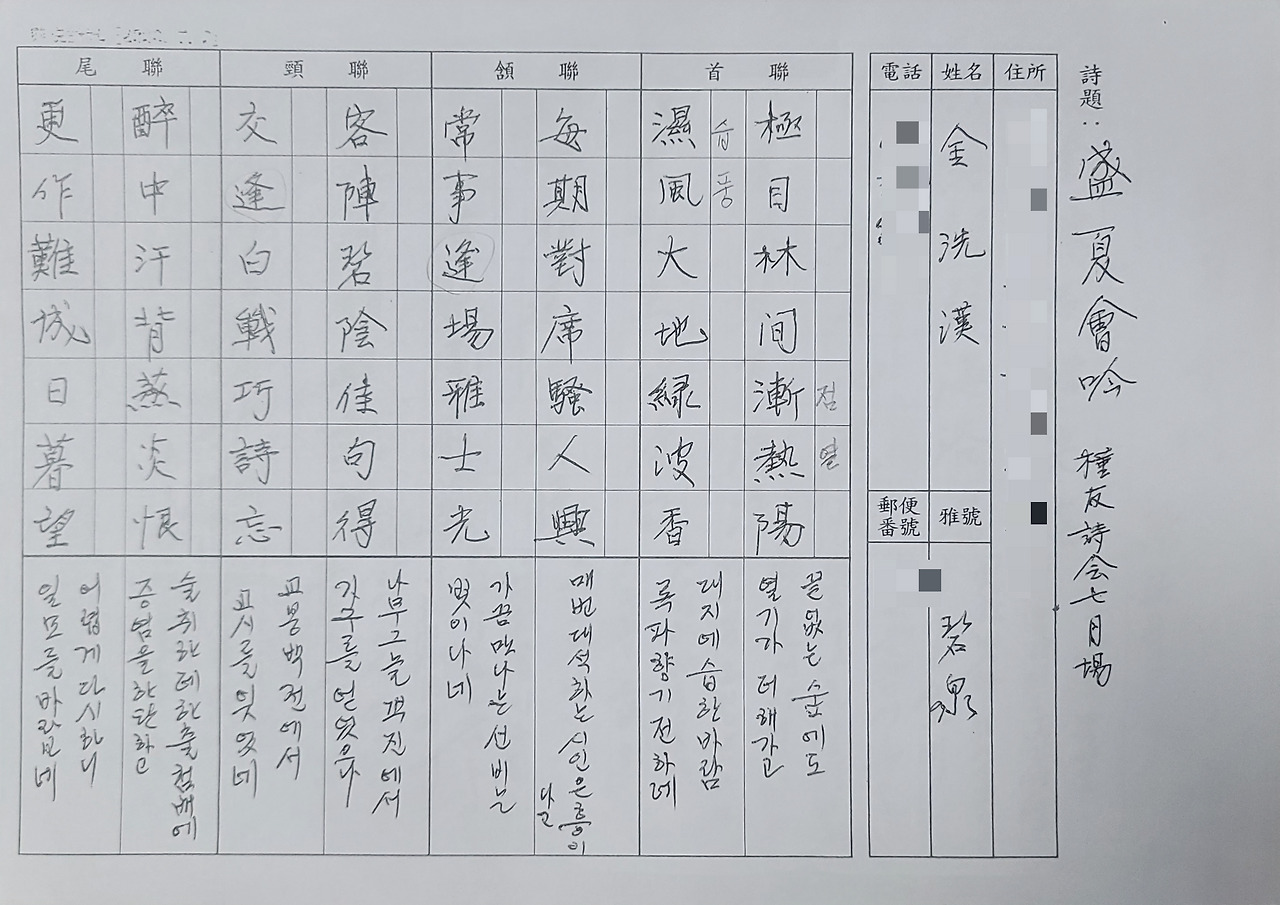 詩題：盛夏會吟 種友詩会七月場
住所
姓名
金洗漢
雅號
碧泉
電話
郵便
番號
首聯
極目林间漸熱陽
점열
濕風大地緑波香
습풍
끝없는 숲에도
열기가 더해가고
대지에 습한바람
록파향기 전하네
頷聯
每期對席騷人興
常事逢場雅士光
매번대석하는 시인은흥이
나고
가끔만나는선비는
빛이나네
頸聯
客陣碧陰佳句得
交逢白戰巧詩忘
나무그늘객진에서
가구를얻었으나
교봉백전에서
교시를잊었네
尾聯
醉中汗背蒸炎恨
更作難城日暮望
술취한데한출첨배에
증염을한탄하고
어렵게다시하니
일모를바라보네